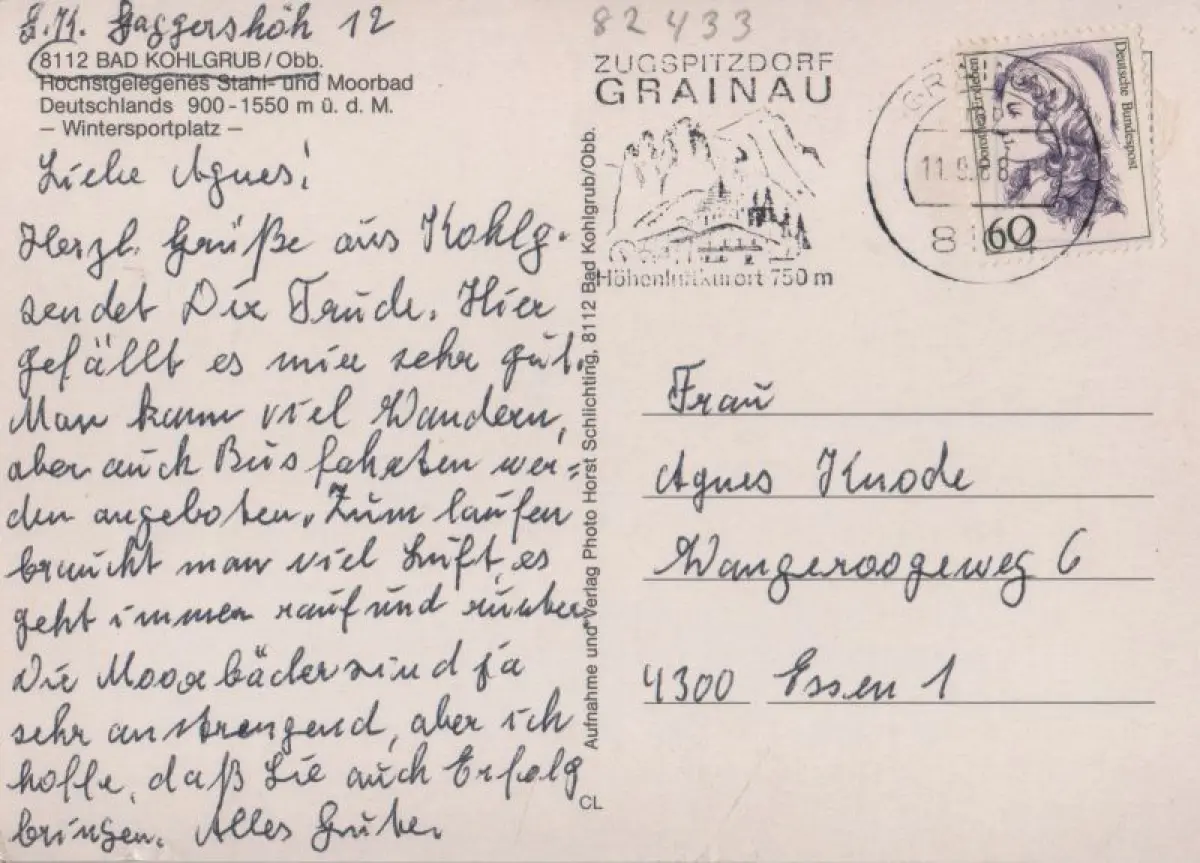 Z.Zt. Gaggershöh 12
8112 BAD KOHLGRUB/Obb.
Höchstgelegenes Stahl- und Moorbad
Deutschlands 900-1550 m ü. d. M.
– Wintersportplatz –
Liebe Agnes!
Herzl. Grüße aus Kohlg.
sendet Dir Trude. Hier
gefällt es mir sehr gut.
Man kann viel Wandern,
aber auch Bus fahrten wer=
den angeboten. Zum laufen
braucht man viel Luft, es
geht immer rauf und runter
Die Moorbäder sind ja
sehr anstrengend, aber ich
hoffe, daß Sie auch Erfolg
bringen. Alles Gute.
Aufnahme und Verlag Photo Horst Schlichting, 8112 Bad Kohlgrub/Obb.
CL
82433
ZUGSPITZDORF
GRAINAU
Höhenluftkurort 750 m
11.9.88
8
Deutsche Bundespost
Dorothea Erxleben
60
Frau
Agnes Knode
Wangeroogeweg 6
4300 Essen 1